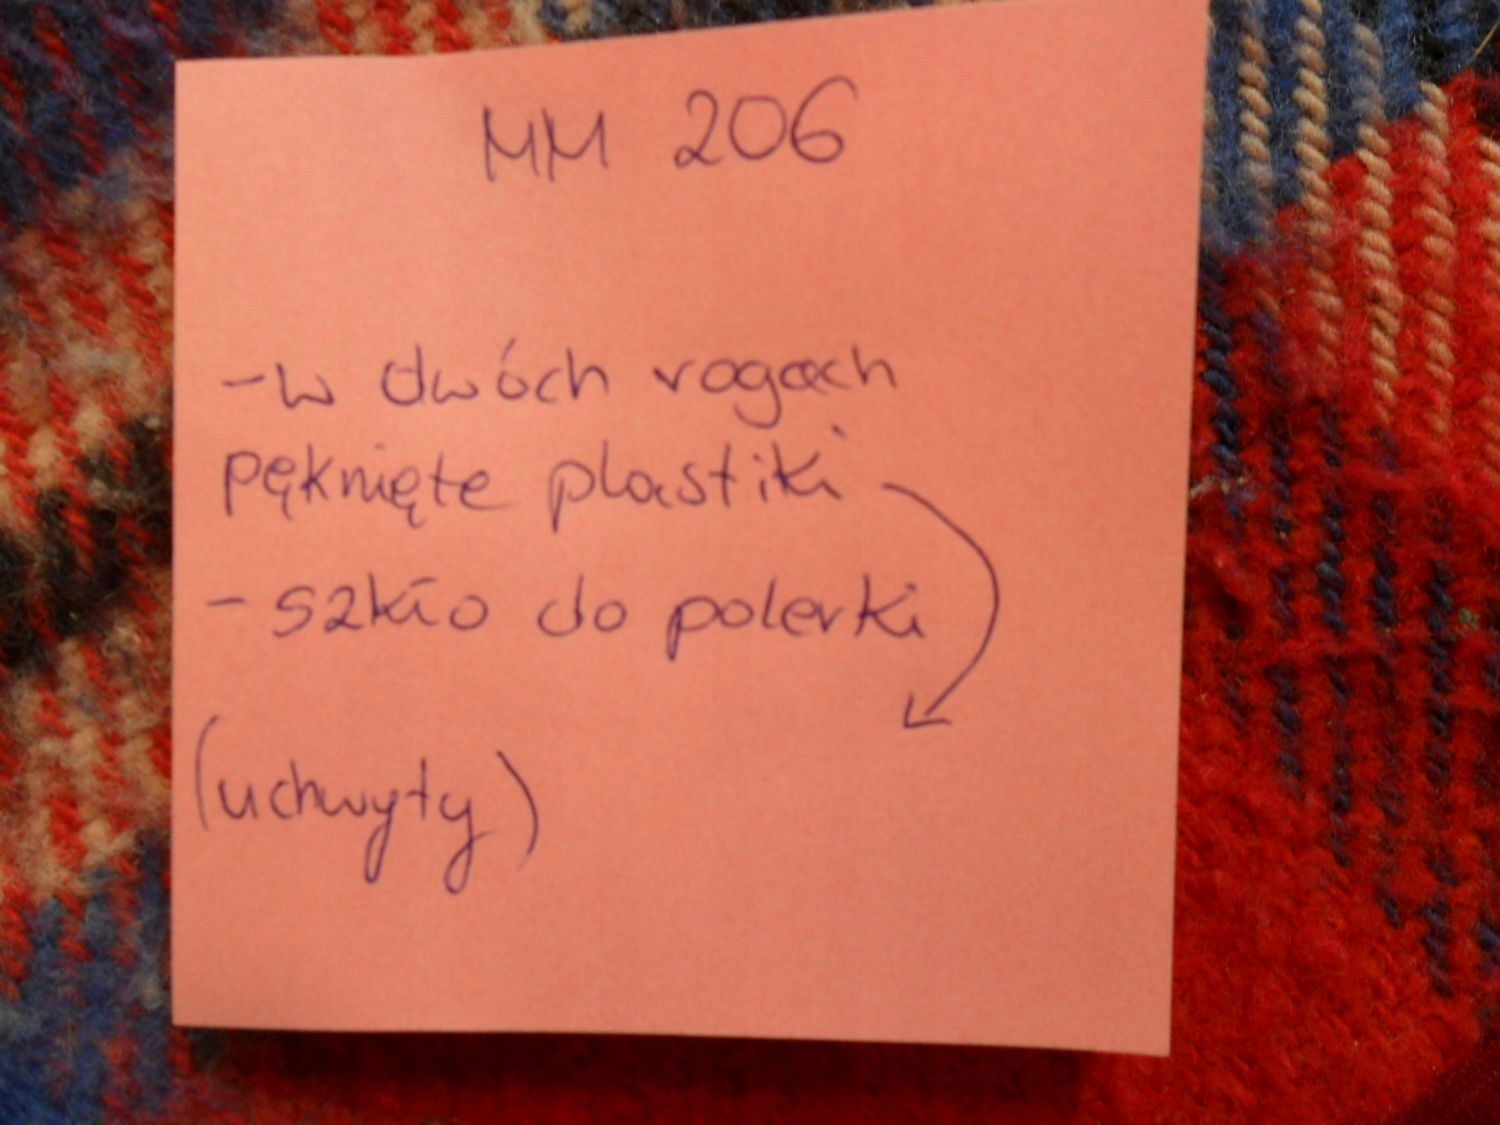 MM 206
- w dwóch rogach
pęknięte plastiki
- szkło do polerki
(uchwyty)